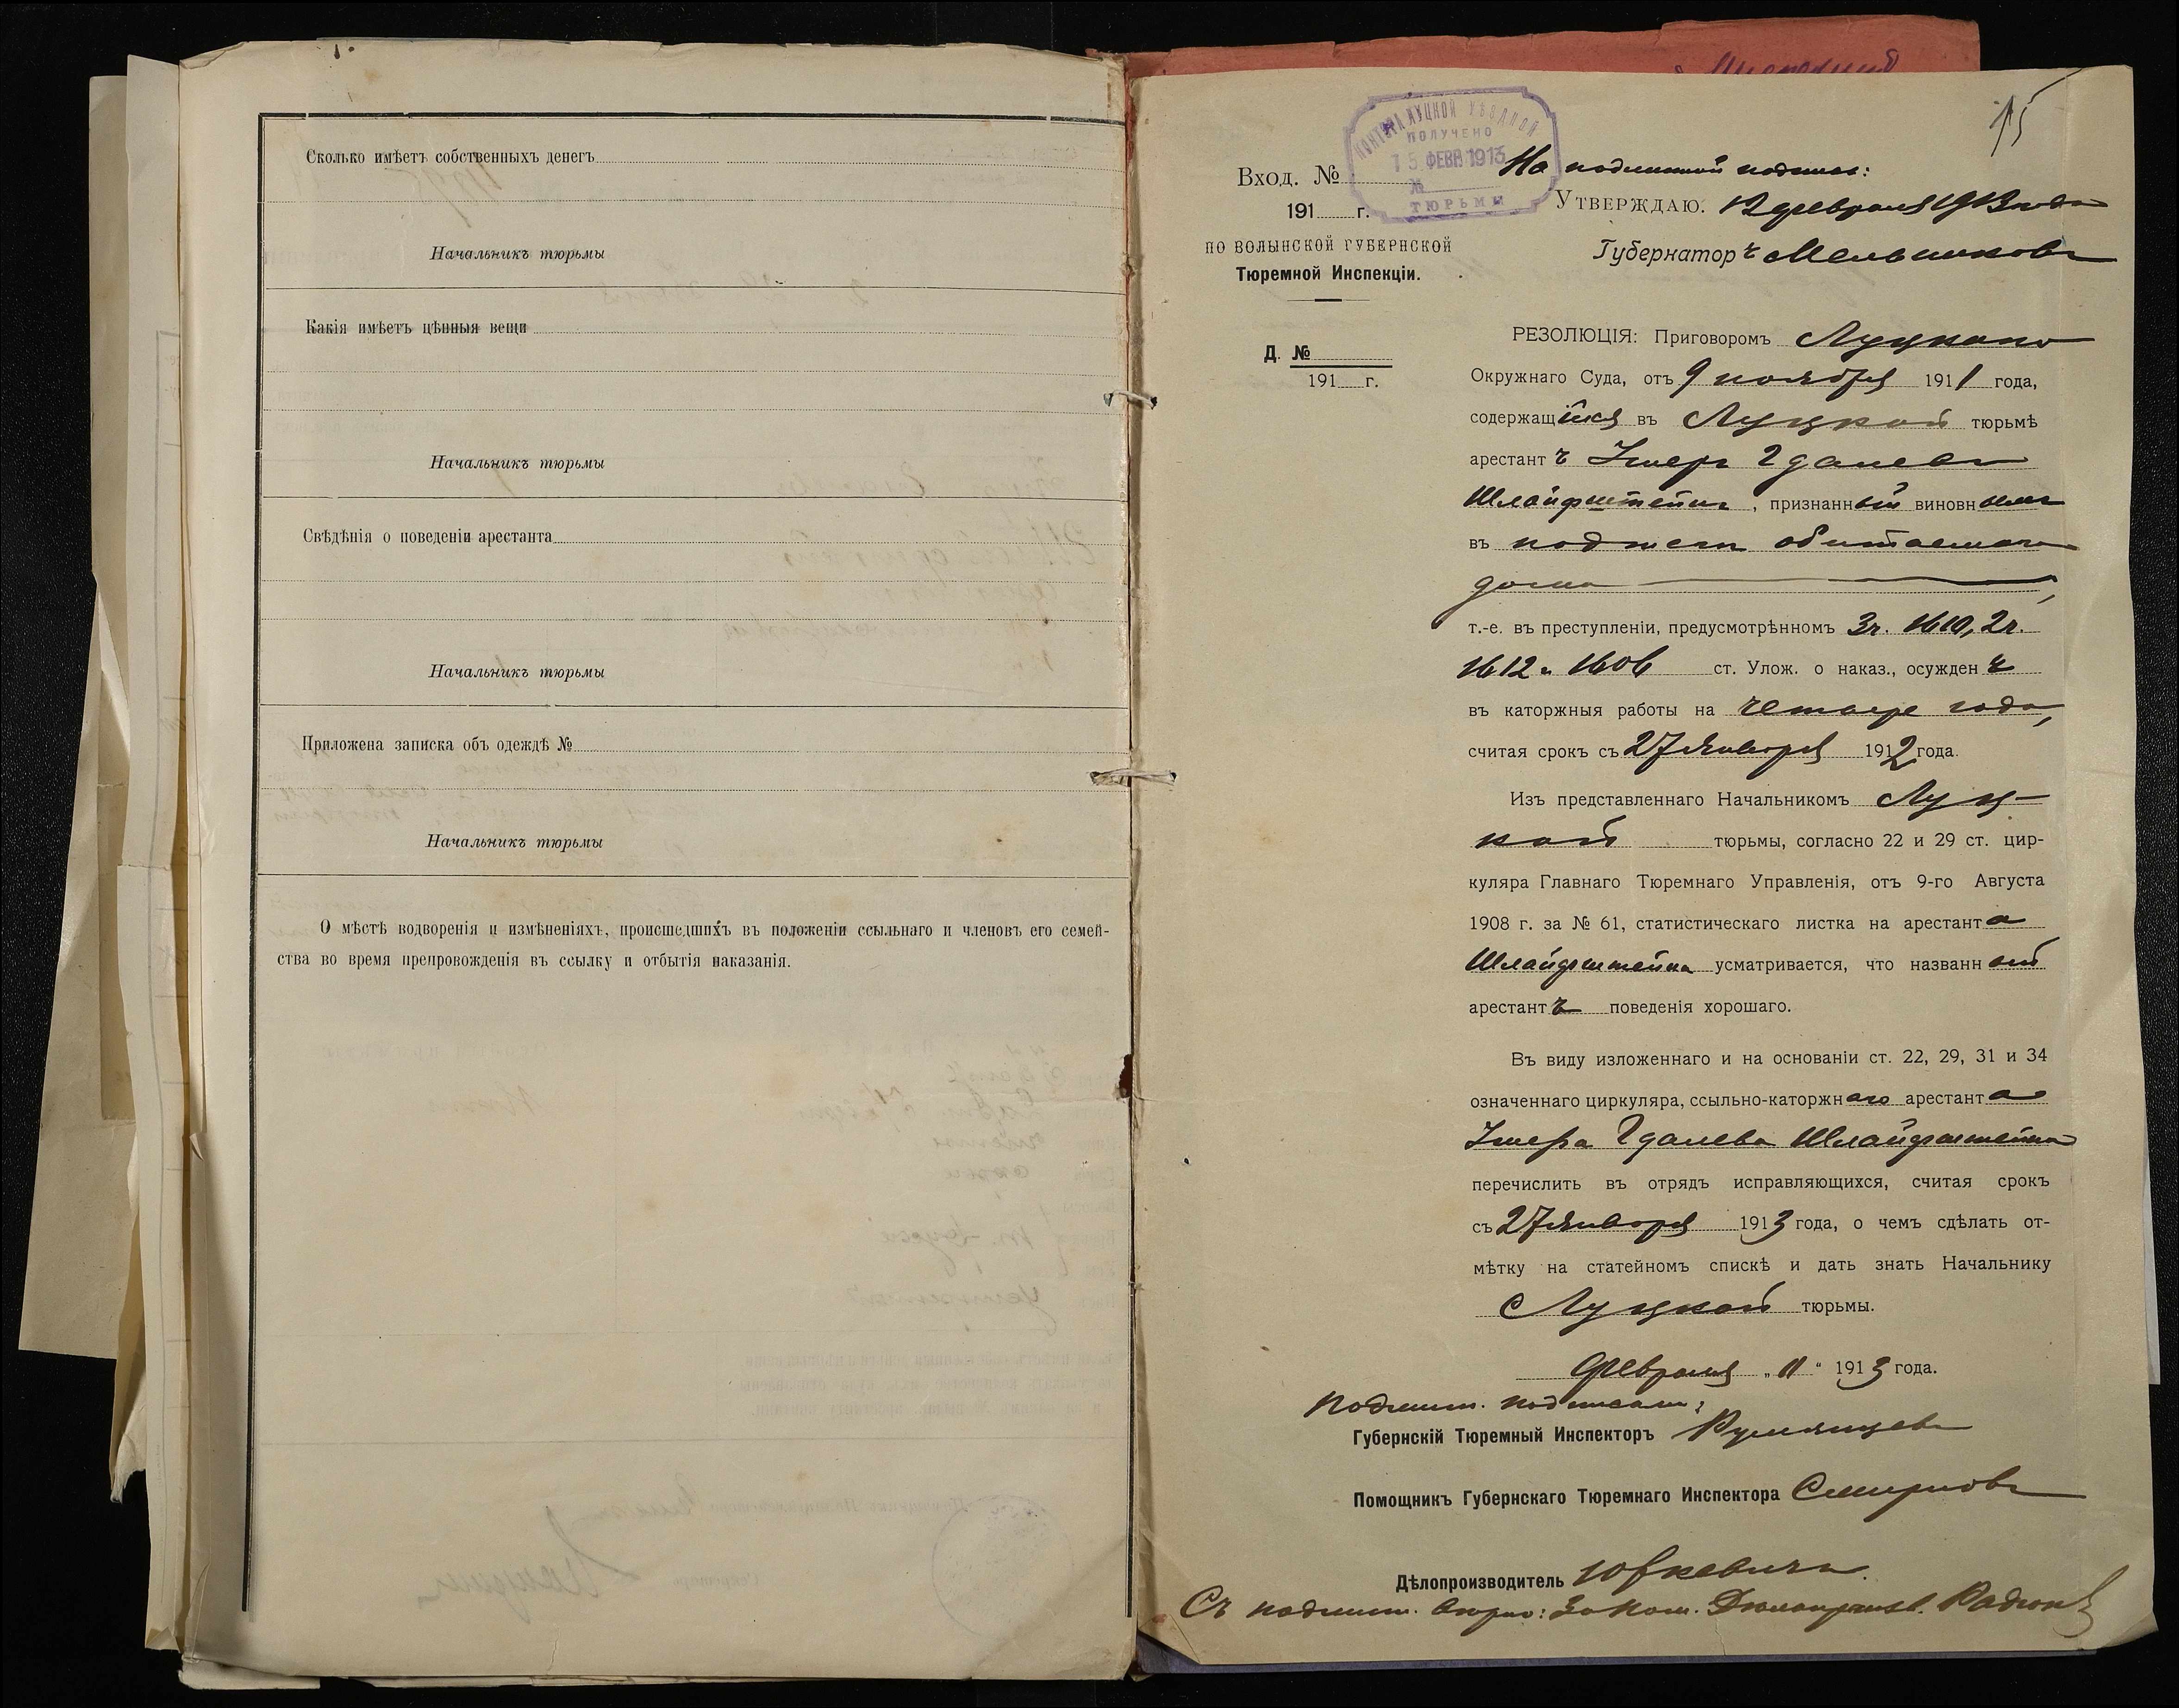 Сколько имѣетъ собственныхъ денегъ
Начальникъ тюрьмы
Какія имѣетъ цѣнныя вещи
Начальникъ тюрьмы
Свѣдѣнія о поведеніи арестанта
Начальникъ тюрьмы
Приложена записка объ одеждѣ №
Начальникъ тюрьмы
О мѣстѣ водворенія и измѣненіяхъ, происшедшихъ въ положеніи ссыльнаго и членовъ его семей-
ства во время препровожденія въ ссылку и отбытія наказанія.
15
КОНТОРА ЛУЦКОЙ УѢЗДНОЙ
ПОЛУЧЕНО
15 ФЕВР 1913
№
ТЮРЬМЫ
Вход. №
191 г.
ПО ВОЛЫНСКОЙ ГУБЕРНСКОЙ
Тюремной Инспекціи.
Д. №
191 г.
На подлинной подпис:
УТВЕРЖДАЮ. 12 февраля 1913 года
Губернаторъ Мельниковъ
РЕЗОЛЮЦІЯ: Приговоромъ Луцкаго
Окружнаго Суда, отъ 9 ноября 1911 года,
содержащійся въ Луцкой тюрьмѣ
арестантъ Гдалевъ
Шлайфштейнъ, признанный виновнымъ
въ поджогѣ обитаемаго
дома,
т.-е. въ преступленіи, предусмотрѣнномъ 3 ч. 1610, 2 ч.
1612 и 1606 ст. Улож. о наказ., осужденъ
въ каторжныя работы на четыре года,
считая срокъ съ 27 Января 1912 года.
Изъ представленнаго Начальникомъ Луц-
кой тюрьмы, согласно 22 и 29 ст. цир-
куляра Главнаго Тюремнаго Управленія, отъ 9-го Августа
1908 г. за № 61, статистическаго листка на арестанта
Шлайфштейна усматривается, что названный
арестантъ поведенія хорошаго.
Въ виду изложеннаго и на основаніи ст. 22, 29, 31 и 34
означеннаго циркуляра, ссыльно-каторжнаго арестанта
Гдалева Шлайфштейна
перечислить въ отрядъ исправляющихся, считая срокъ
съ 27 Января 1913 года, о чемъ сдѣлать от-
мѣтку на статейномъ спискѣ и дать знать Начальнику
Луцкой тюрьмы.
Февраля „11“ 1913 года.
Подлин. подписали:
Губернскій Тюремный Инспекторъ Румянцевъ
Помощникъ Губернскаго Тюремнаго Инспектора Смирновъ
Дѣлопроизводитель Юркевичъ
Съ подлин. вѣрно: За Пом. Дѣлопроизв.